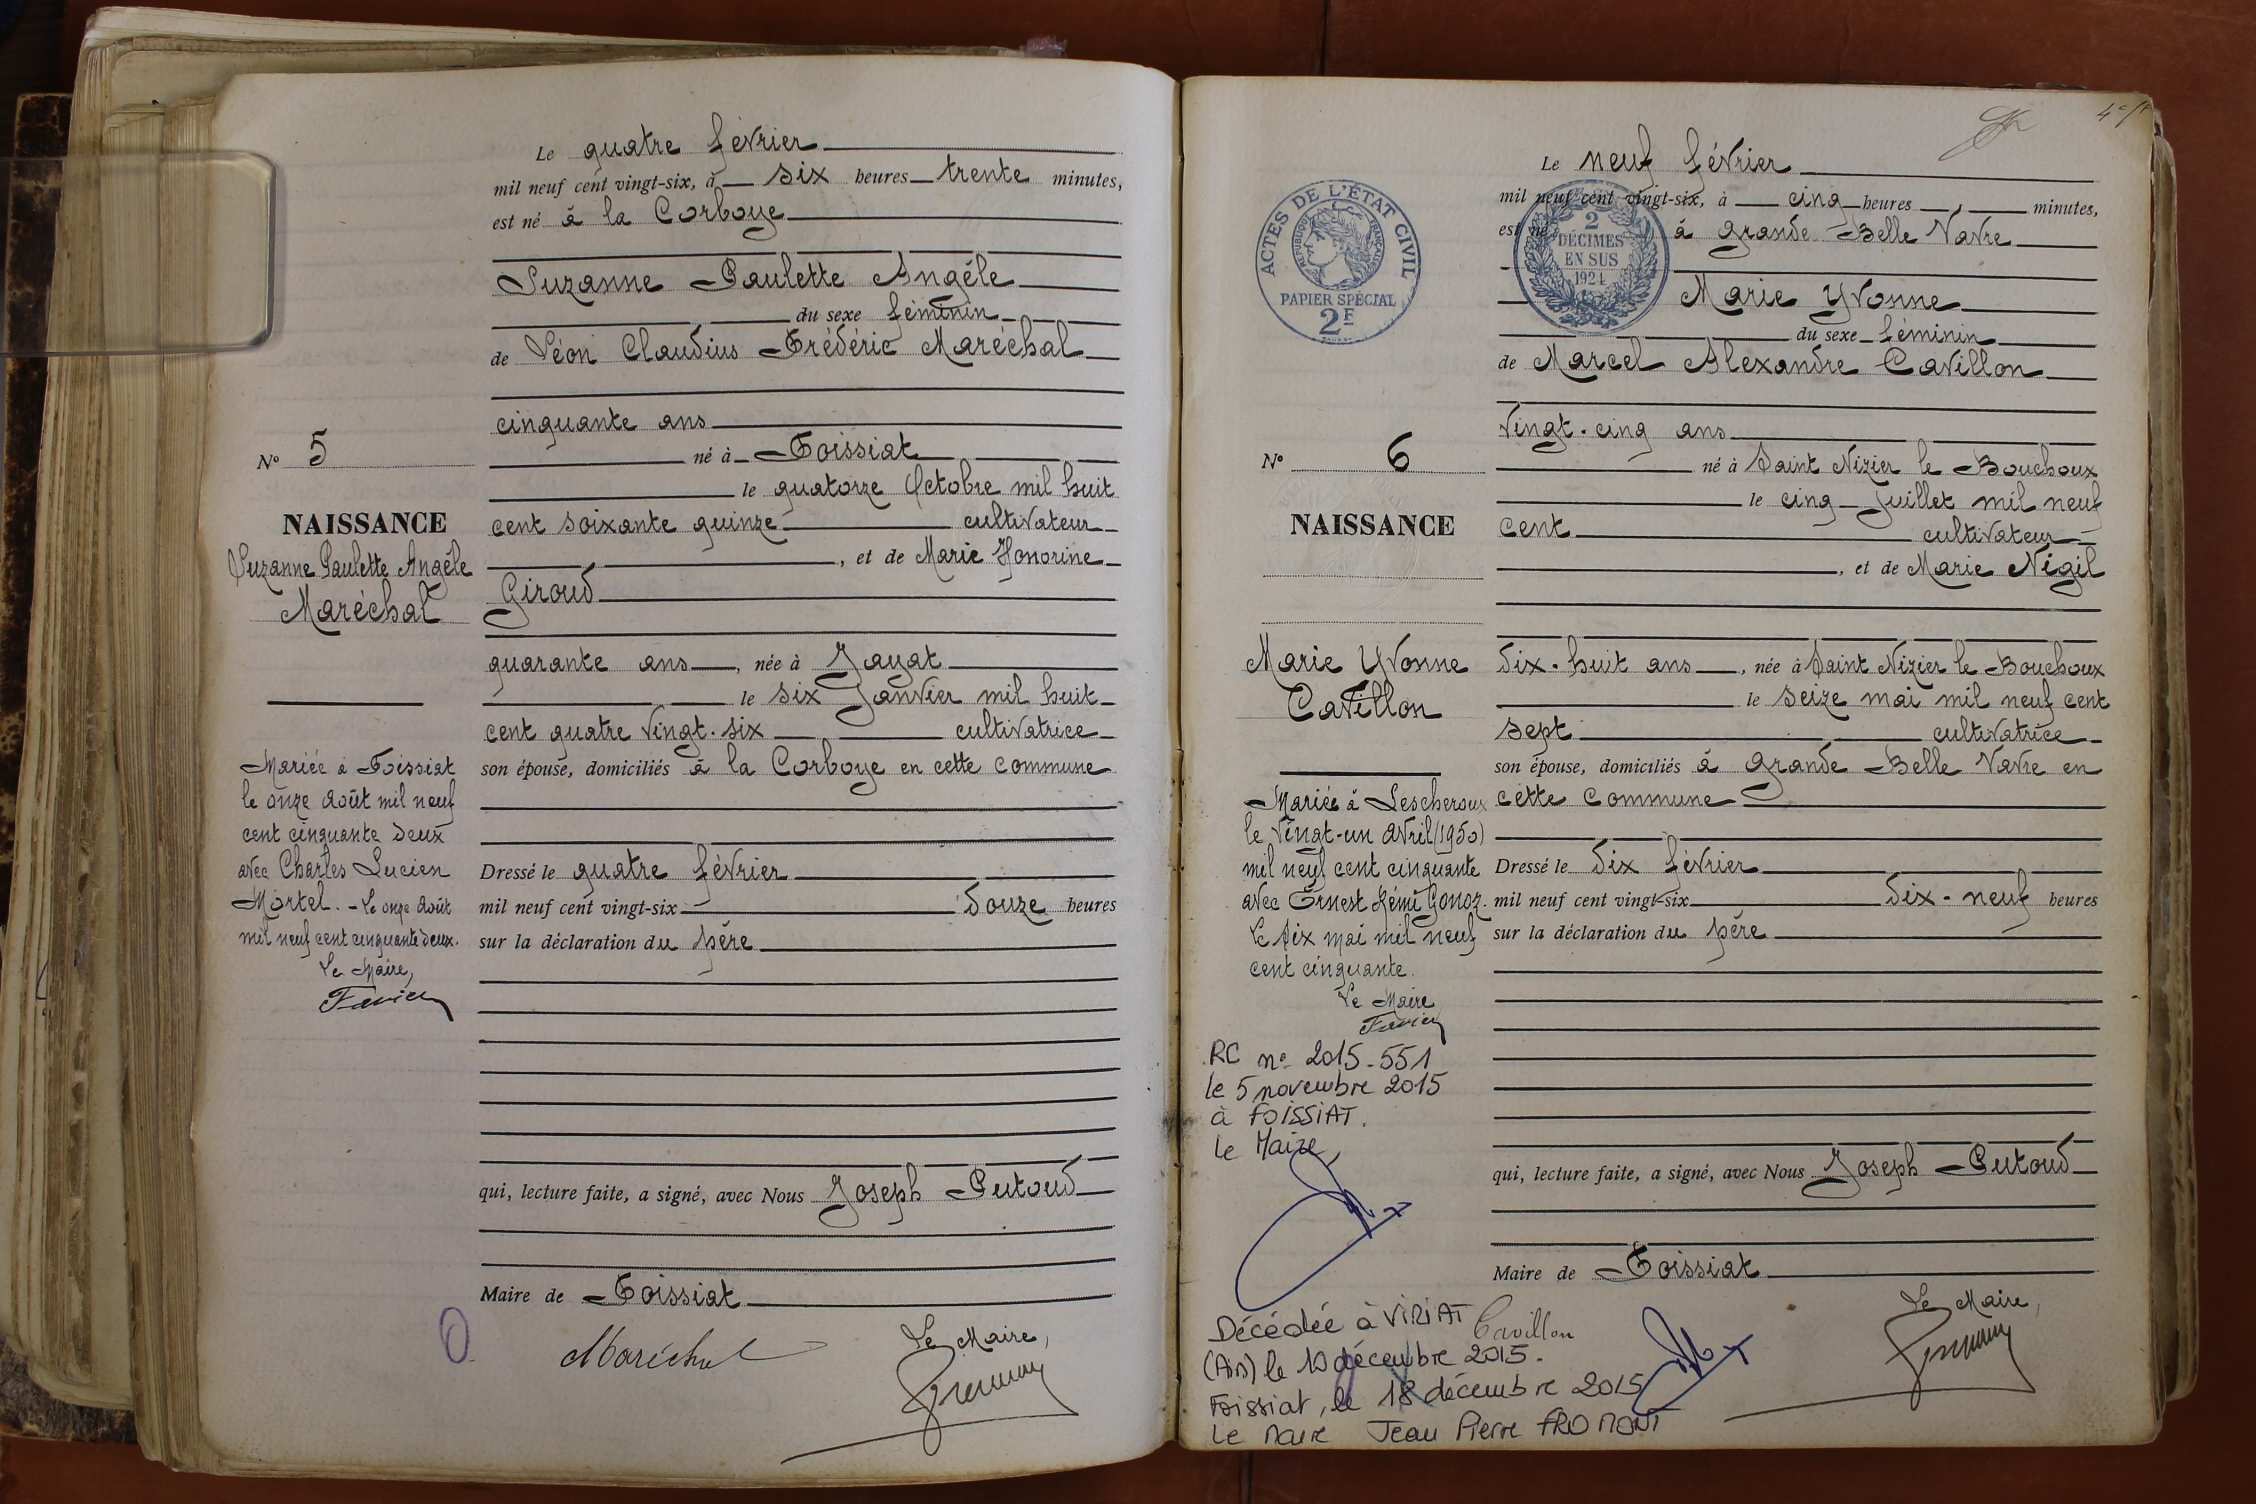 Le quatre février
mil neuf cent vingt-six, à six heures trente minutes,
est né à la Corboye
Suzanne Paulette Angèle
du sexe féminin
de Léon Claudius Frédéric Maréchal
cinquante ans
né à Foissiat
le quatorze Octobre mil huit
cent soixante quinze cultivateur
, et de Marie Honorine
Giroud
quarante ans, née à Jayat
le six Janvier mil huit
cent quatre vingt-six cultivatrice
son épouse, domiciliés à la Corboye en cette commune
Dressé le quatre février
mil neuf cent vingt-six douze heures
sur la déclaration du père
qui, lecture faite, a signé, avec Nous Joseph Putoud
Maire de Foissiat
Le Maire,
Maréchal
N° 5
NAISSANCE
Suzanne Paulette Angèle
Maréchal
Mariée à Foissiat
le onze Août mil neuf
cent cinquante deux
avec Charles Lucien
Mortel. - Le onze Août
mil neuf cent cinquante deux.
Le Maire,
ACTES DE L'ÉTAT CIVIL
RÉPUBLIQUE FRANÇAISE
PAPIER SPÉCIAL
2F
2
DÉCIMES
EN SUS
1924
Le neuf février
mil neuf cent vingt-six, à cinq heures minutes,
est né à Grande Belle Vavre
Marie Yvonne
du sexe féminin
de Marcel Alexandre Cavillon
vingt-cinq ans
né à Saint Nizier le Bouchoux
le cinq Juillet mil neuf
cent cultivateur
, et de Marie Nigil
dix-huit ans, née à Saint Nizier le Bouchoux
le seize mai mil neuf cent
sept cultivatrice
son épouse, domiciliés à Grande Belle Vavre en
cette commune
Dressé le dix février
mil neuf cent vingt-six dix-neuf heures
sur la déclaration du père
qui, lecture faite, a signé, avec Nous Joseph Putoud
Maire de Foissiat
Le Maire,
Cavillon
N° 6
NAISSANCE
Marie Yvonne
Cavillon
Mariée à Lescheroux
le vingt-un avril (1950)
mil neuf cent cinquante
avec Ernest Rémi Gonoz.
Le dix mai mil neuf
cent cinquante.
Le Maire
RC n° 2015-551
le 5 novembre 2015
à FOISSIAT.
Le Maire,
Décédée à VIRIAT
(Ain) le 10 décembre 2015.
Foissiat, le 18 décembre 2015
Le Maire Jean Pierre FROMONT